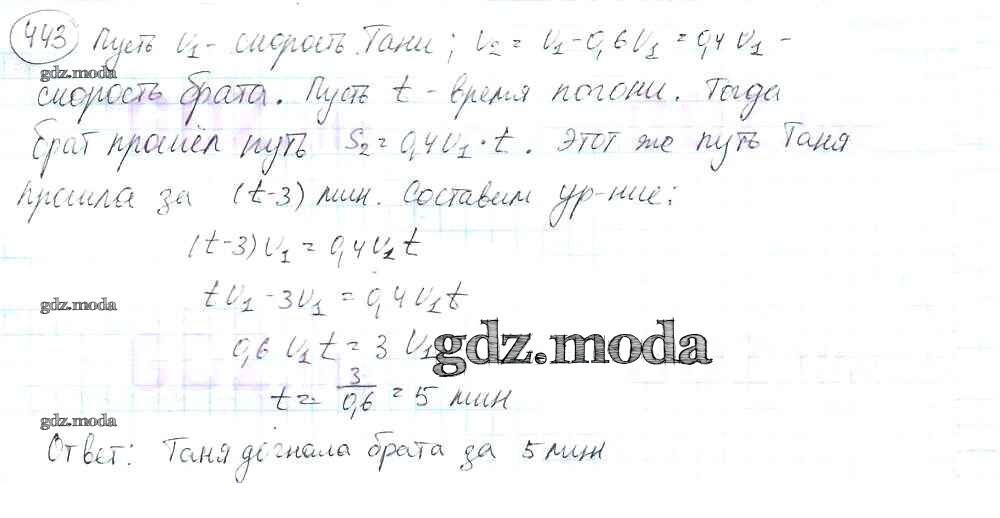 443 Пусть v₁ - скорость Тани; v₂ = v₁ - 0,6v₁ = 0,4v₁ -
gdz.moda
скорость брата. Пусть t - время погони. Тогда
брат прошёл путь S₂ = 0,4v₁ · t. Этот же путь Таня
прошла за (t-3) мин. Составим ур-ние:
(t-3)v₁ = 0,4v₁t
gdz.moda
tv₁ - 3v₁ = 0,4v₁t
0,6 v₁t = 3 v₁
gdz.moda
t = 3/0,6 = 5 мин
gdz.moda
Ответ: Таня догнала брата за 5 мин